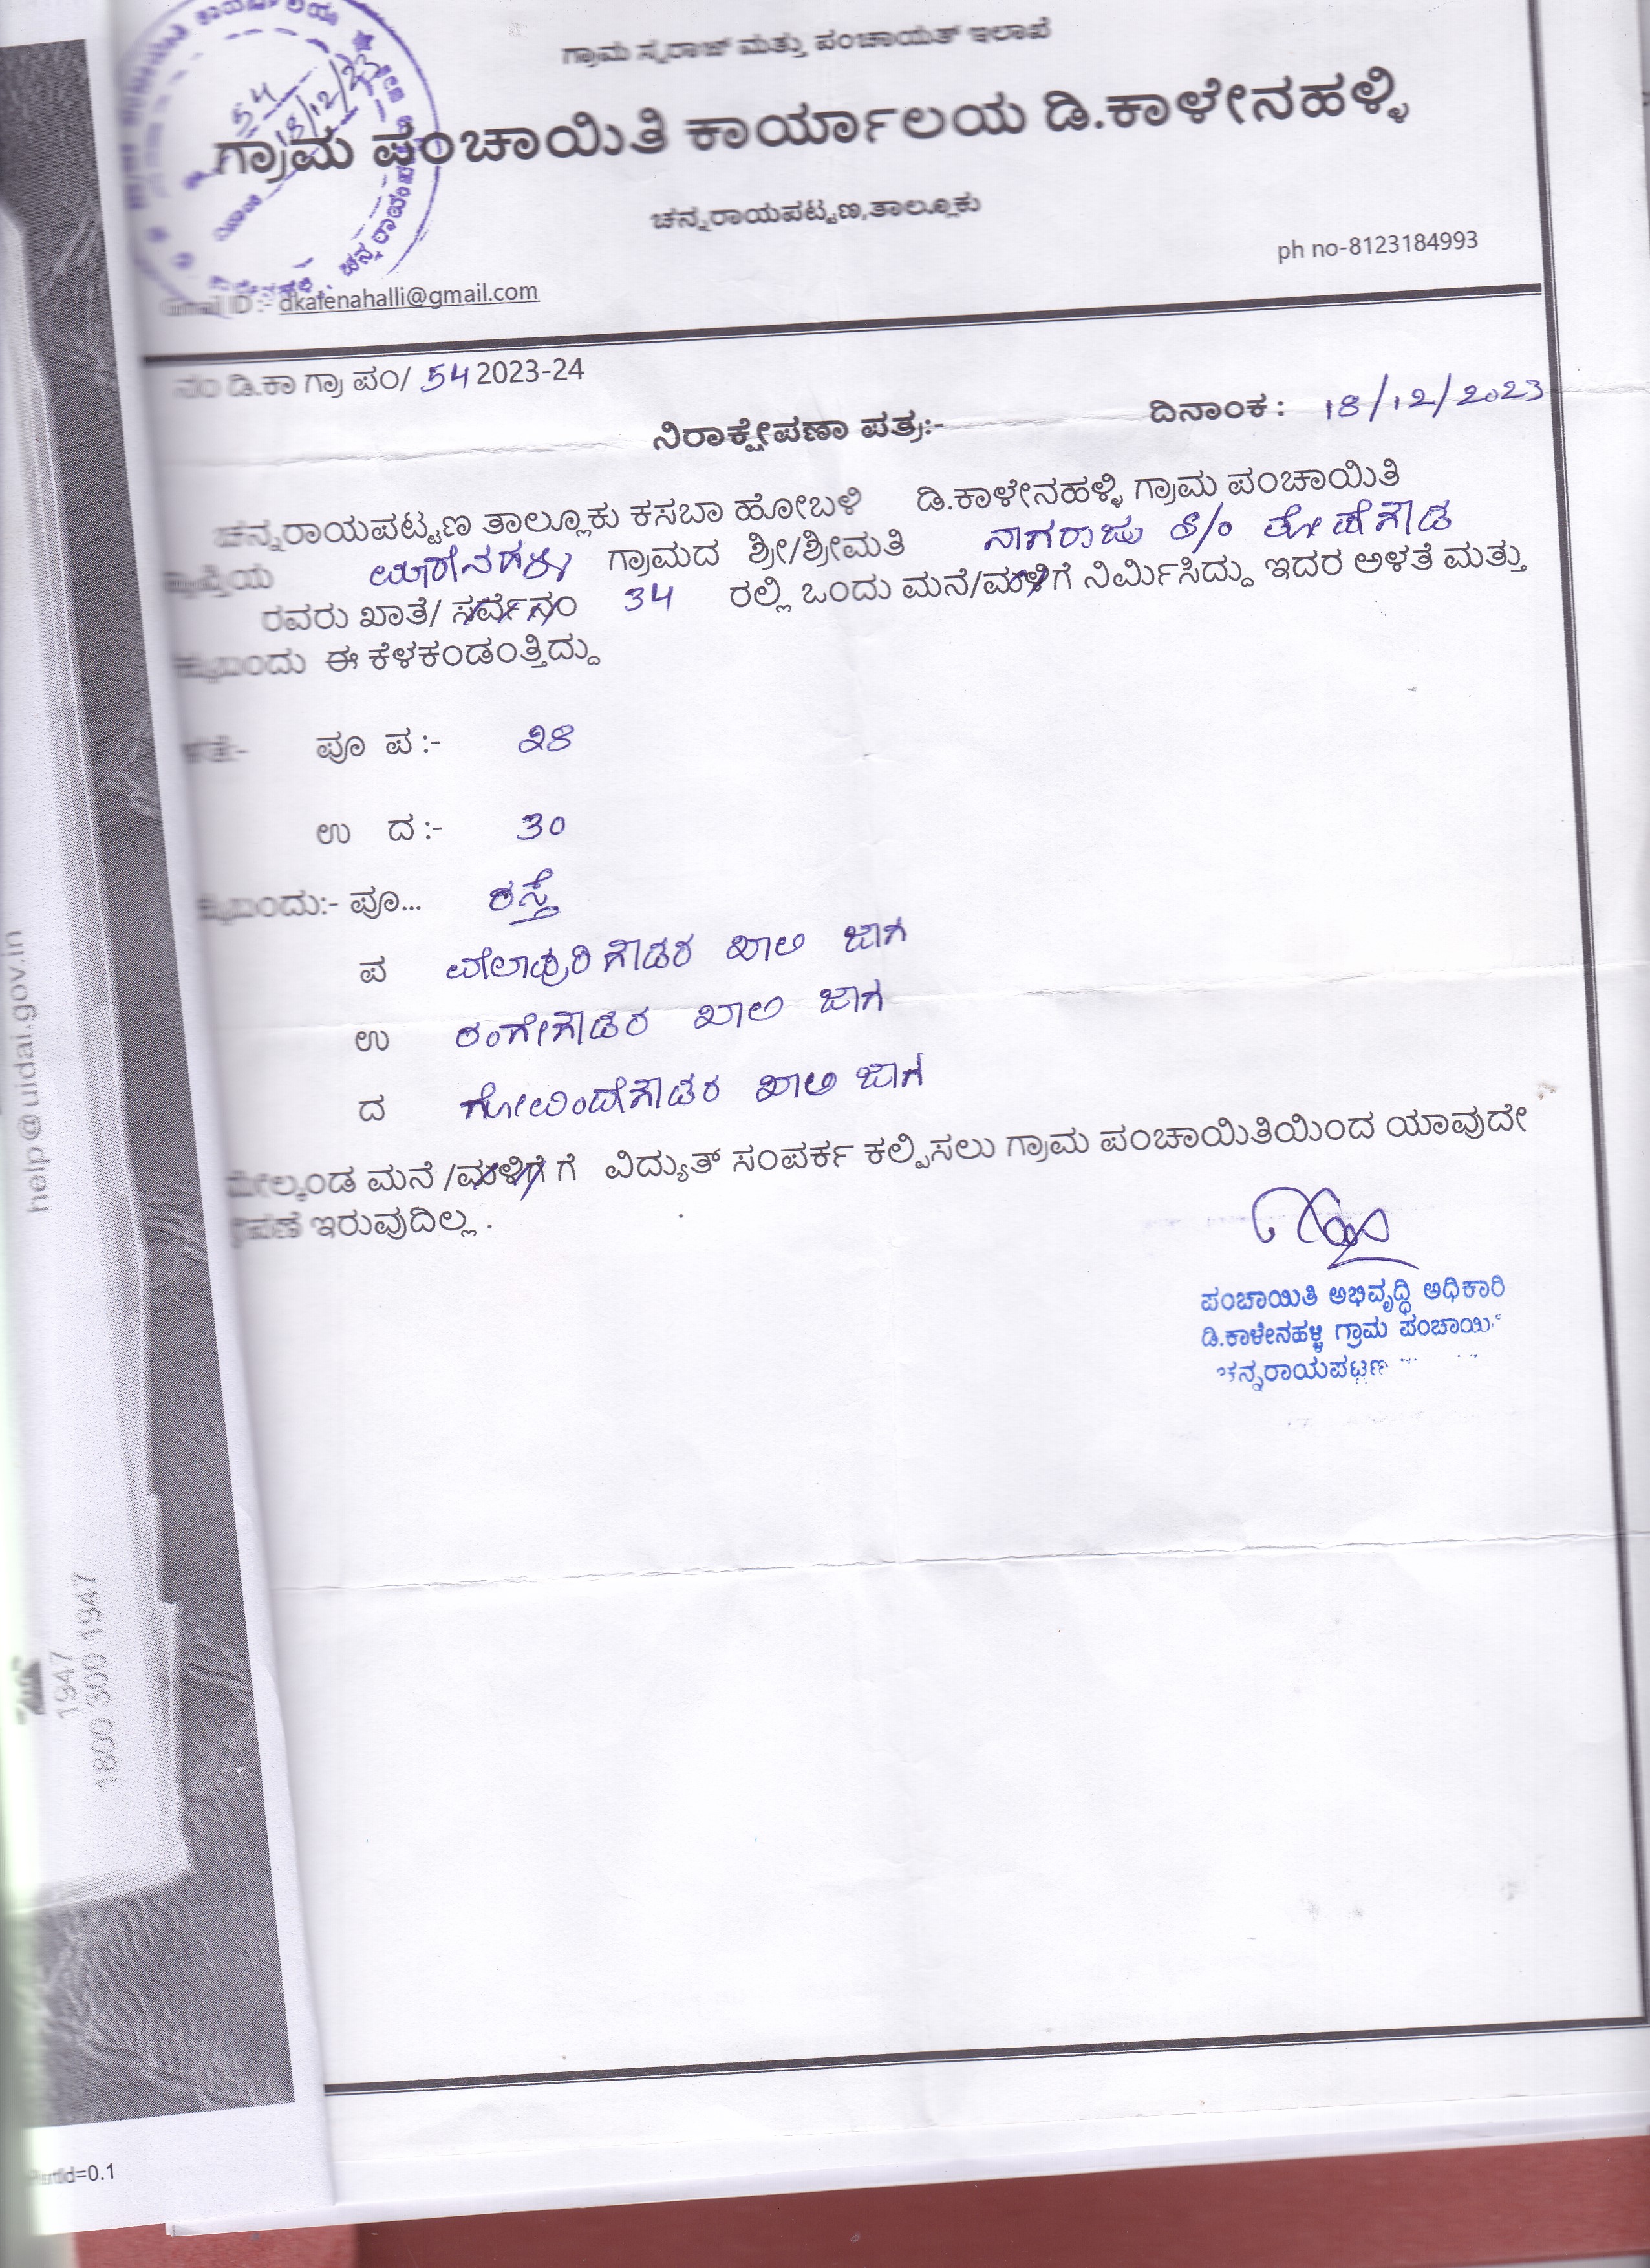 ಗ್ರಾಮ ಸ್ವರಾಜ್ ಮತ್ತು ಪಂಚಾಯತ್ ಇಲಾಖೆ
54
18/12/23
ಗ್ರಾಮ ಪಂಚಾಯಿತಿ ಕಾರ್ಯಾಲಯ ಡಿ.ಕಾಳೇನಹಳ್ಳಿ
ಚನ್ನರಾಯಪಟ್ಟಣ,ತಾಲ್ಲೂಕು
ph no-8123184993
Gmail ID :- dkalenahalli@gmail.com
ನಂ ಡಿ.ಕಾ ಗ್ರಾ ಪಂ/ 54 2023-24
ನಿರಾಕ್ಷೇಪಣಾ ಪತ್ರ:- ದಿನಾಂಕ : 18/12/2023
ಚನ್ನರಾಯಪಟ್ಟಣ ತಾಲ್ಲೂಕು ಕಸಬಾ ಹೋಬಳಿ ಡಿ.ಕಾಳೇನಹಳ್ಳಿ ಗ್ರಾಮ ಪಂಚಾಯಿತಿ
ಗ್ರಾಮದ ಶ್ರೀ/ಶ್ರೀಮತಿ ನಾಗರಾಜು S/o
ರವರು ಖಾತೆ/ ಸರ್ವೆನಂ 34 ರಲ್ಲಿ ಒಂದು ಮನೆ/ಮಳಿಗೆ ನಿರ್ಮಿಸಿದ್ದು ಇದರ ಅಳತೆ ಮತ್ತು
ಈ ಕೆಳಕಂಡಂತ್ತಿದ್ದು
ಪೂ ಪ :- 28
ಉ ದ :- 30
ಪೂ... ರಸ್ತೆ
ಪ ಖಾಲಿ ಜಾಗ
ಉ ರಂಗೇಗೌಡರ ಖಾಲಿ ಜಾಗ
ದ ಗೋವಿಂದೇಗೌಡರ ಖಾಲಿ ಜಾಗ
ಮೇಲ್ಕಂಡ ಮನೆ /ಮಳಿಗೆ ಗೆ ವಿದ್ಯುತ್ ಸಂಪರ್ಕ ಕಲ್ಪಿಸಲು ಗ್ರಾಮ ಪಂಚಾಯಿತಿಯಿಂದ ಯಾವುದೇ
ಇರುವುದಿಲ್ಲ .
ಪಂಚಾಯಿತಿ ಅಭಿವೃದ್ಧಿ ಅಧಿಕಾರಿ
ಡಿ.ಕಾಳೇನಹಳ್ಳಿ ಗ್ರಾಮ ಪಂಚಾಯಿ
ಚನ್ನರಾಯಪಟ್ಟಣ
help@uidai.gov.in
1947
1800 300 1947
=0.1